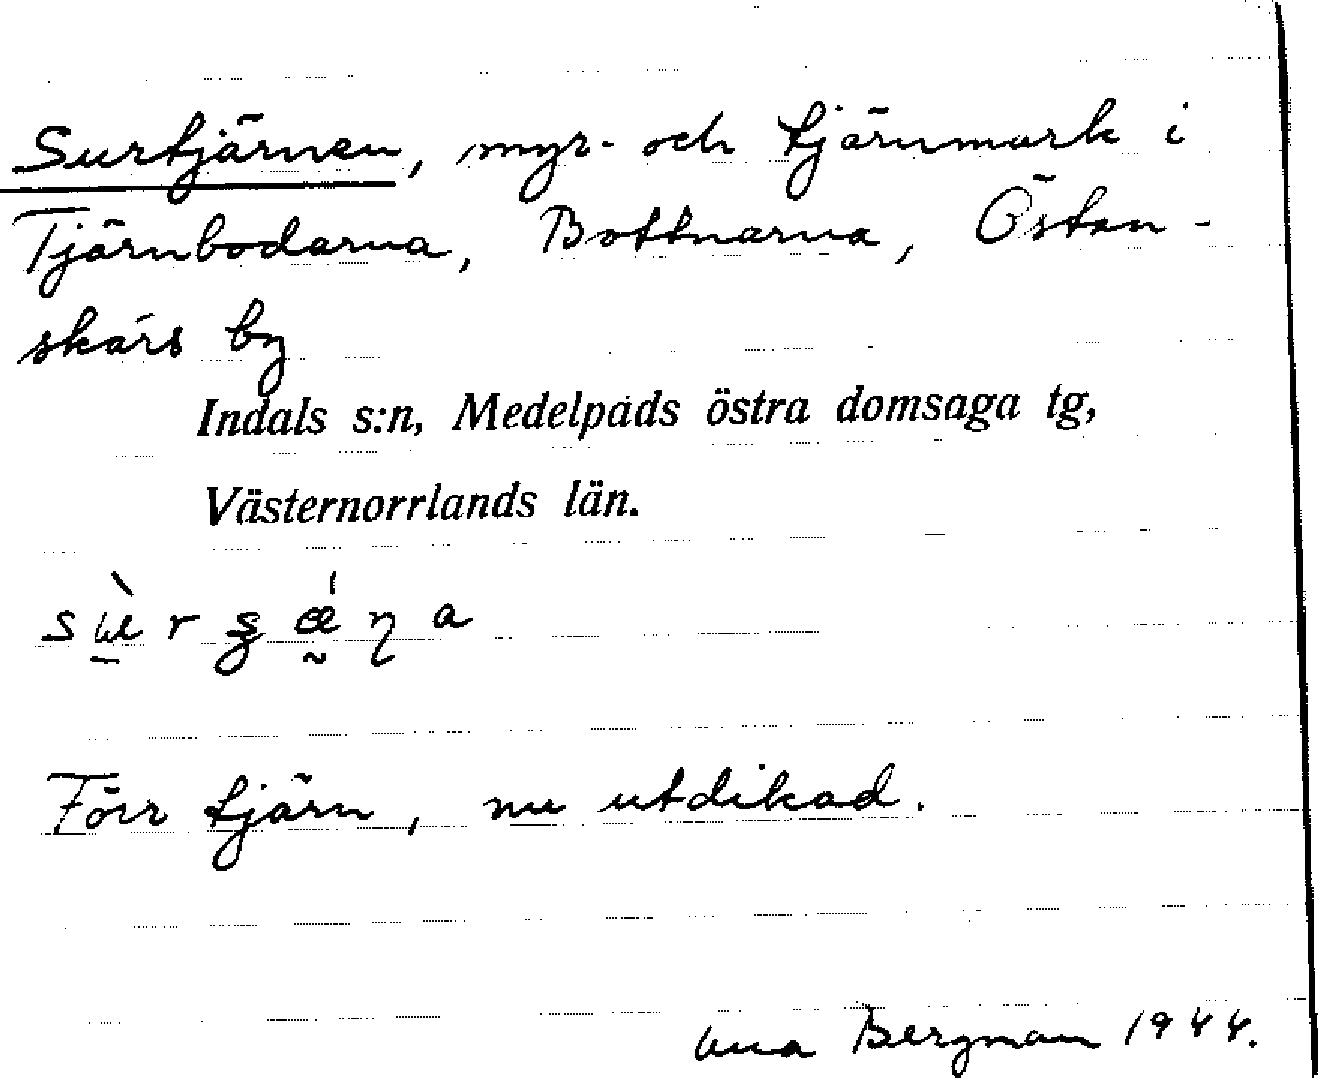 Surtjärnen, myr- och tjärnmark i
Tjärnbodarna, Bottnarna, Östan-
skärs by
Indals s:n, Medelpads östra domsaga tg,
Västernorrlands län.
Förr tjärn, nu utdikad.
Bergman 1944.